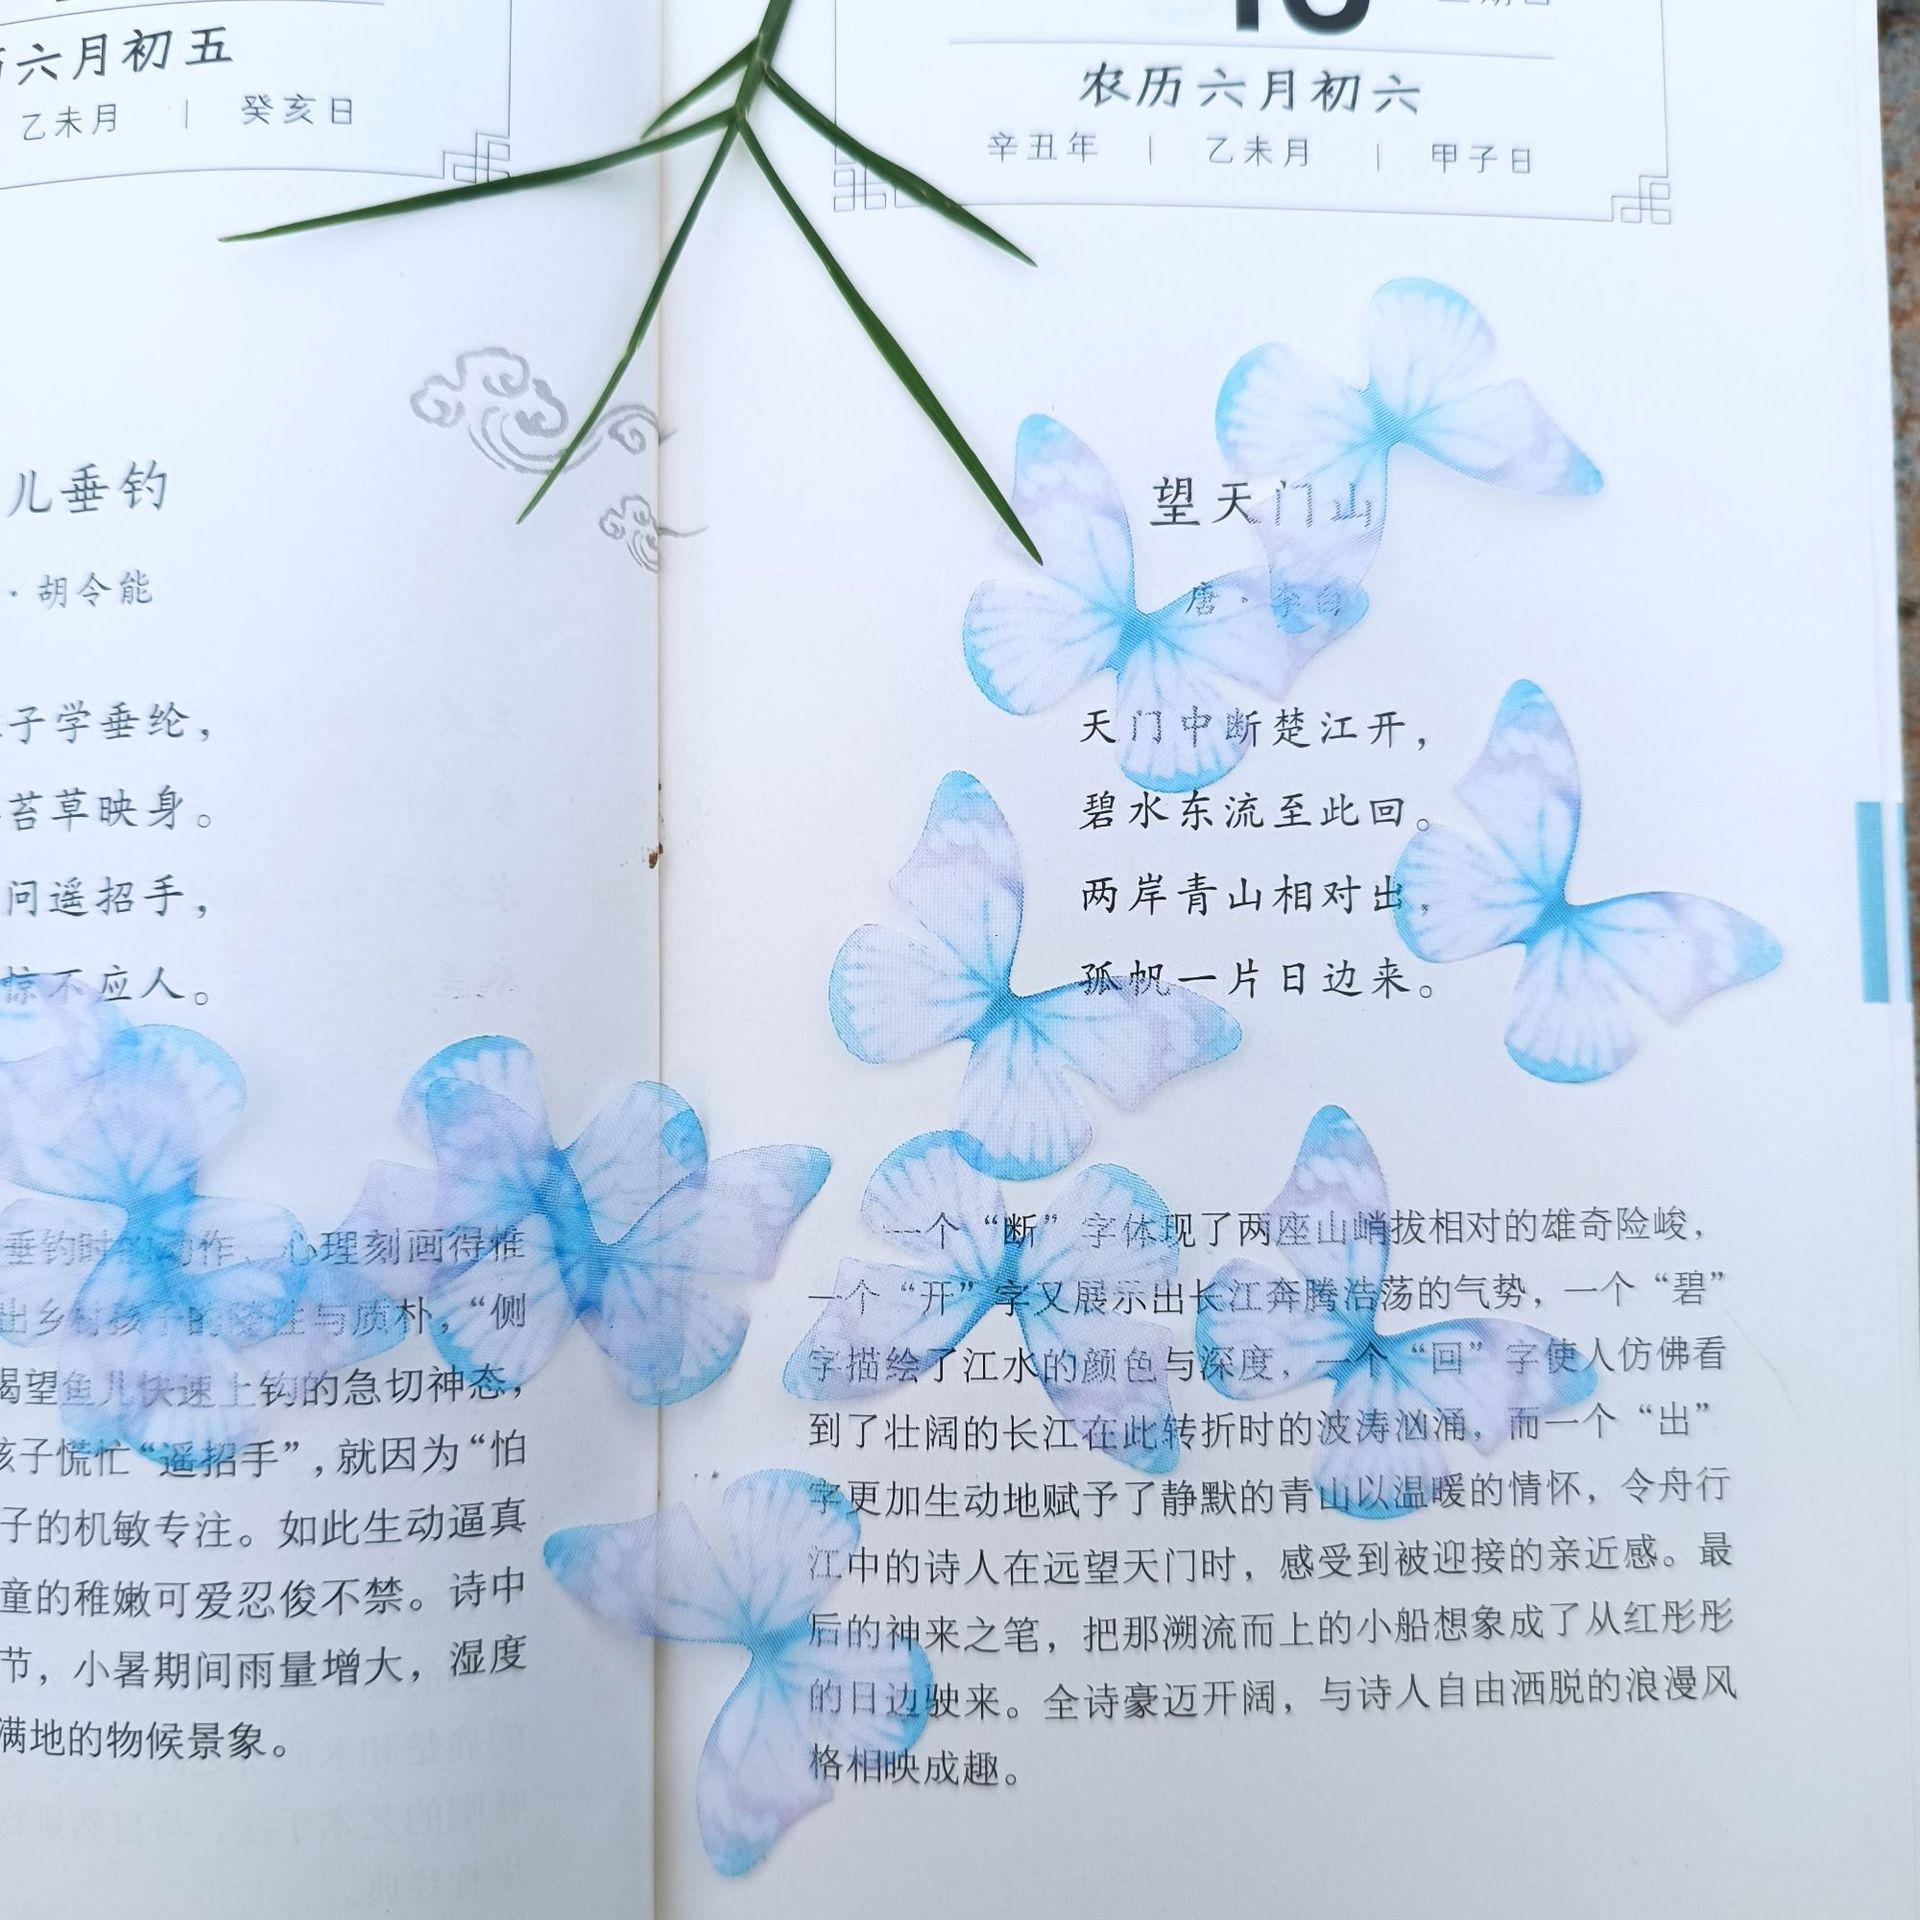 六月初五
乙未月 | 癸亥日
儿垂钓
·胡令能
子学垂纶，
苔草映身。
问遥招手，
惊不应人。
出乡村孩子的
与质朴，“侧
渴望鱼儿快速上钩的急切神态，
孩子慌忙“遥招手”，就因为“怕
子的机敏专注。如此生动逼真
童的稚嫩可爱忍俊不禁。诗中
节，小暑期间雨量增大，湿度
满地的物候景象。
农历六月初六
辛丑年 | 乙未月 | 甲子日
望天门山
唐·李白
天门中断楚江开，
碧水东流至此回。
两岸青山相对出，
孤帆一片日边来。
一个“断”字体现了两座山峭拔相对的雄奇险峻，
一个“开”字又展示出长江奔腾浩荡的气势，一个“碧”
字描绘了江水的颜色与深度，一个“回”字使人仿佛看
到了壮阔的长江在此转折时的波涛汹涌，而一个“出”
字更加生动地赋予了静默的青山以温暖的情怀，令舟行
江中的诗人在远望天门时，感受到被迎接的亲近感。最
后的神来之笔，把那溯流而上的小船想象成了从红彤彤
的日边驶来。全诗豪迈开阔，与诗人自由洒脱的浪漫风
格相映成趣。